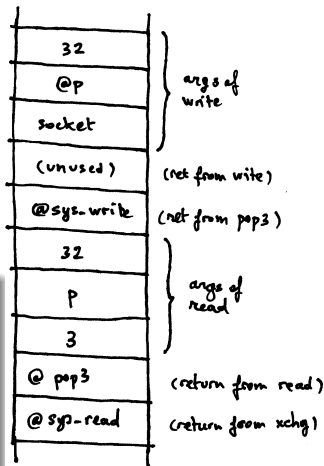 32
@p
socket
args of
write
(unused) (ret from write)
@sys_write (ret from pop3)
32
p
3
args of
read
@ pop3 (return from read)
@ sys_read (return from xchg)